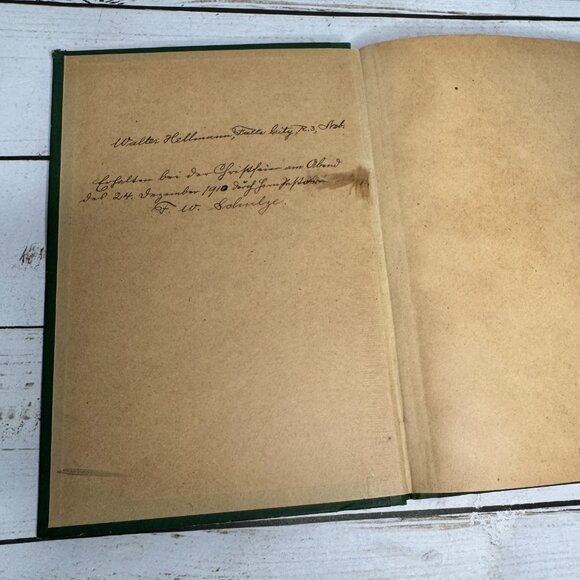 Walter Hellmann, Falls City, R. 3, Neb.
Erhalten bei der Christfeier am Abend
des 24. Dezember 1910 durch Herrn Pastor
F. W. Schulze.